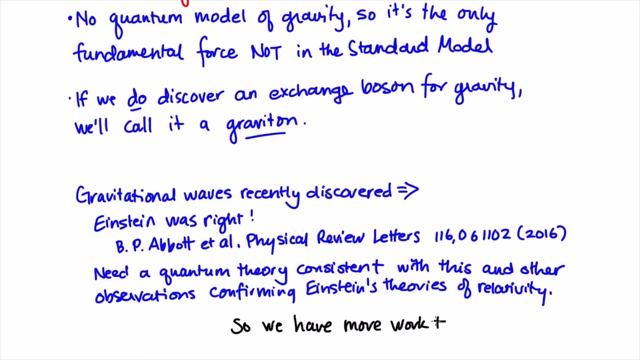 • No quantum model of gravity, so it's the only
fundamental force NOT in the Standard Model
• If we do discover an exchange boson for gravity,
we'll call it a graviton.
Gravitational waves recently discovered ⇒
Einstein was right!
B.P. Abbott et al. Physical Review Letters 116, 061102 (2016)
Need a quantum theory consistent with this and other
observations confirming Einstein's theories of relativity.
So we have more work t